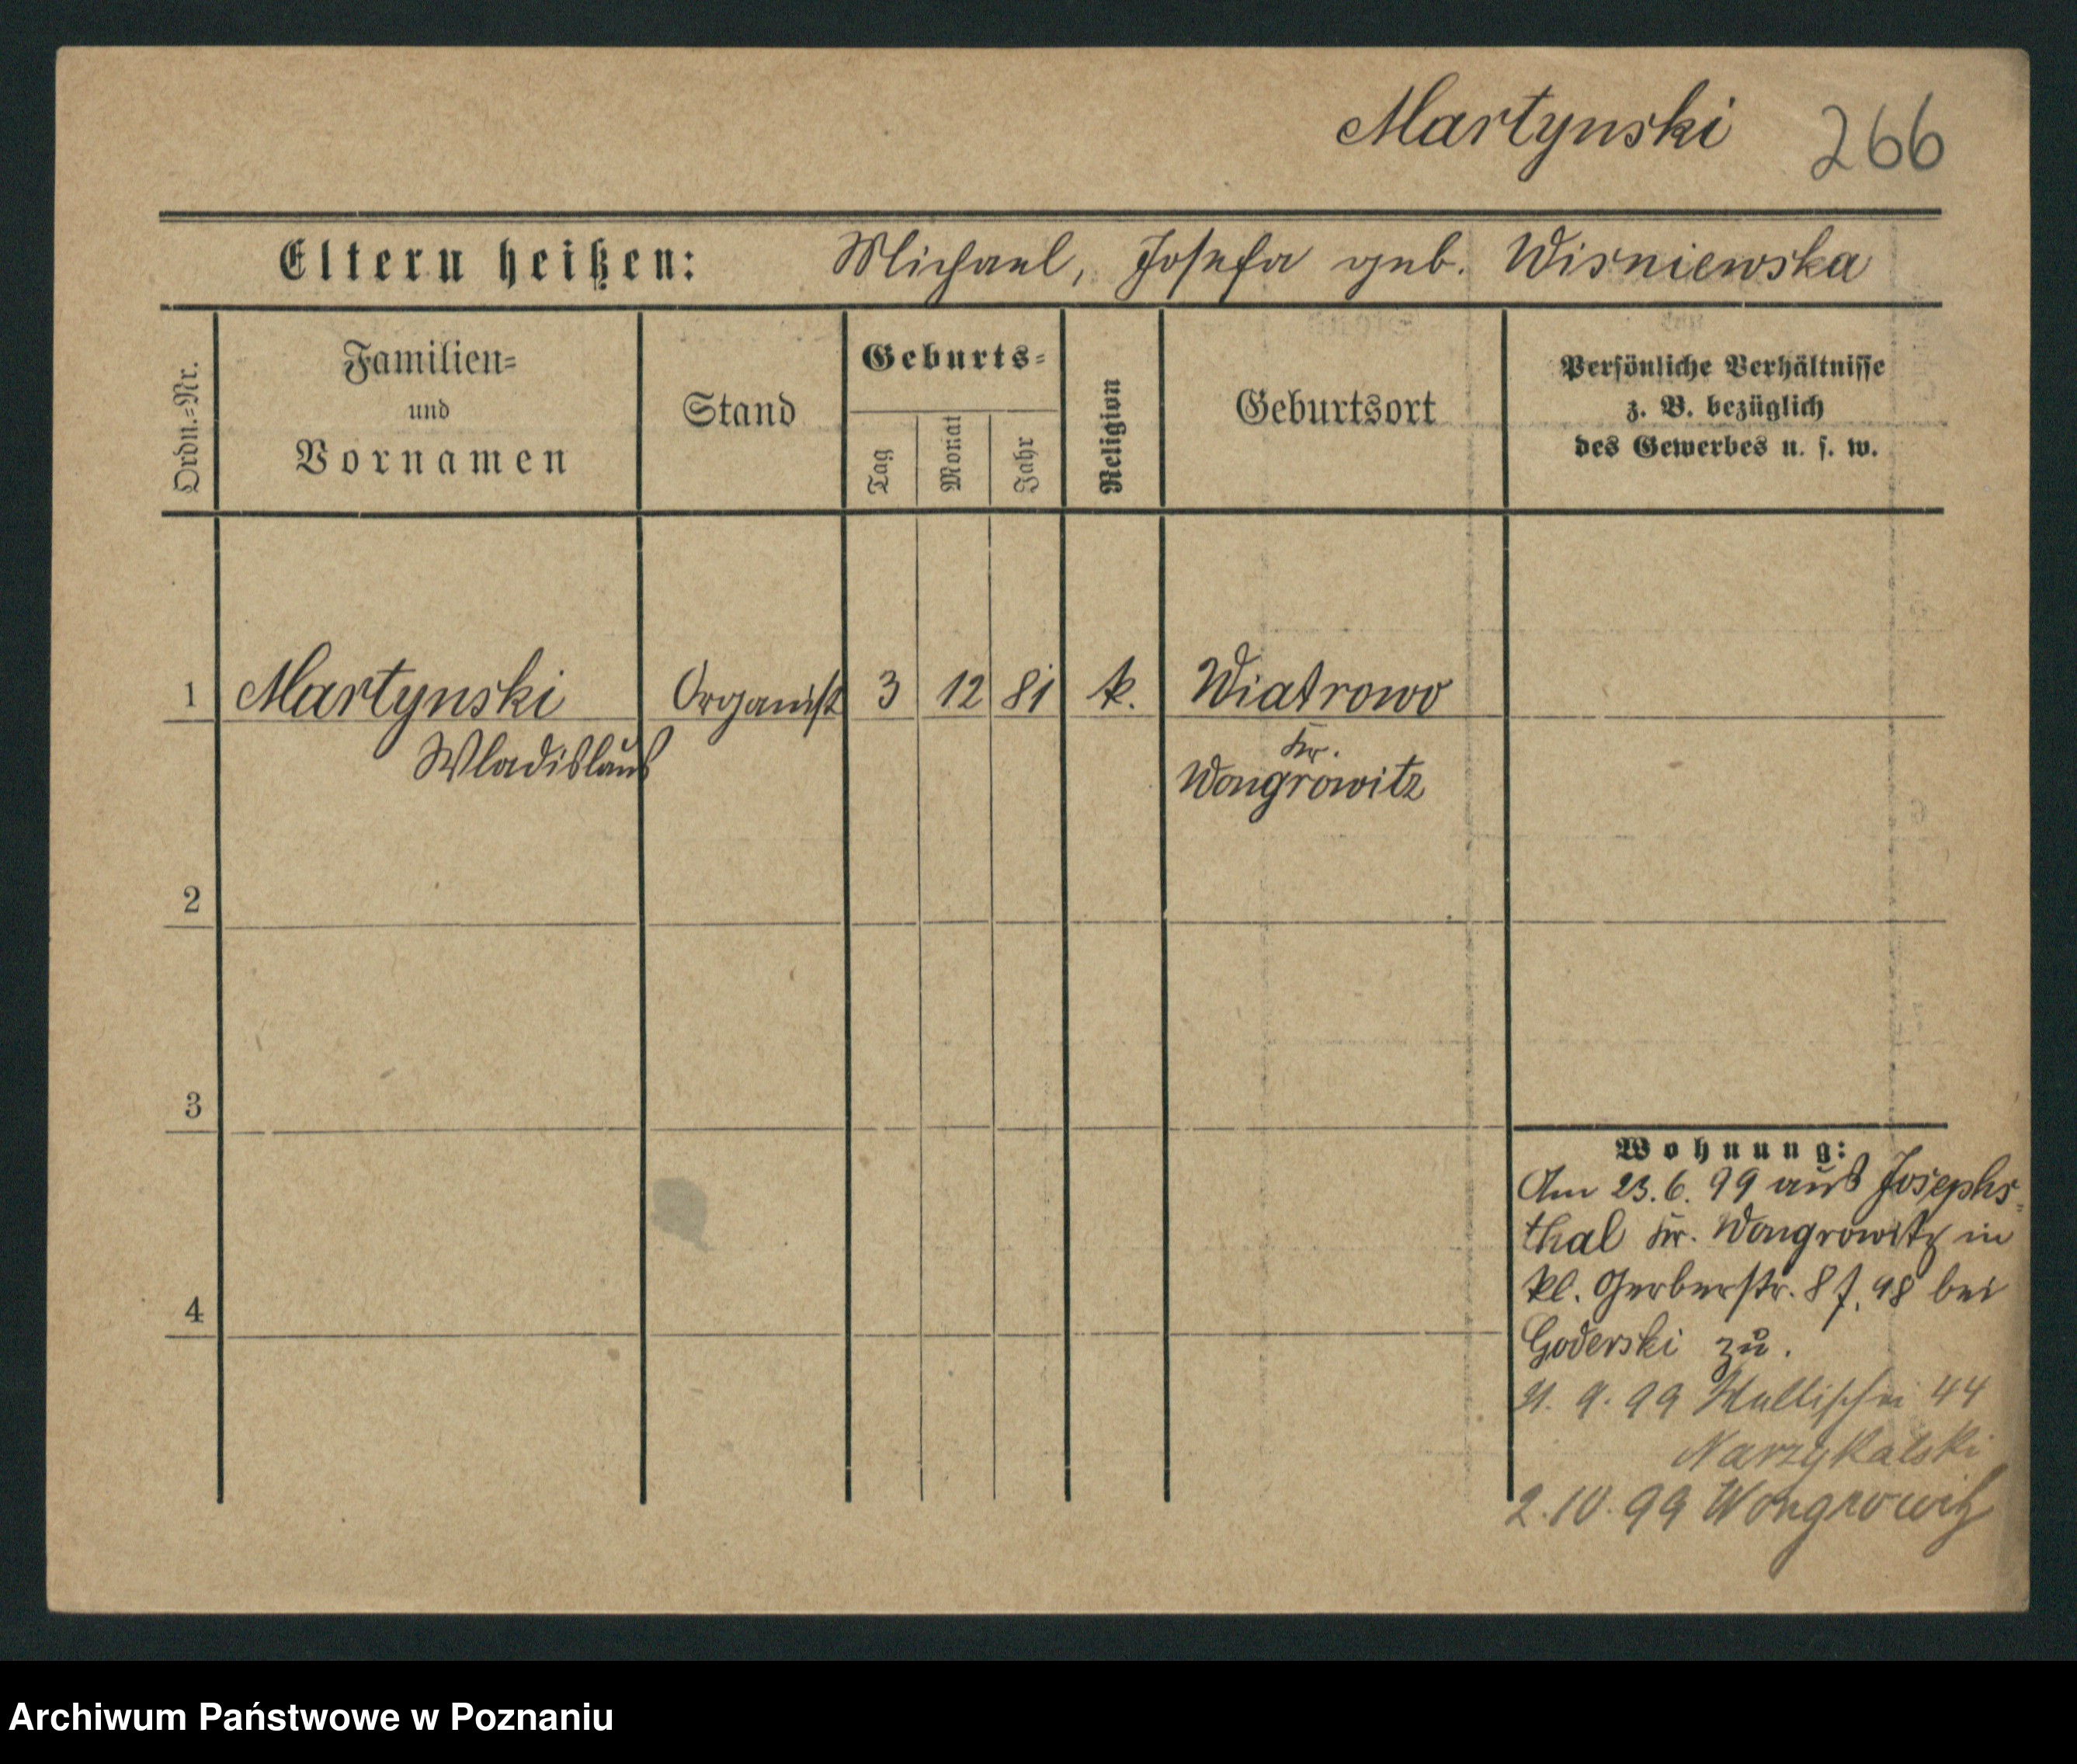 Martynski 266
Eltern heißen: Michael, Josefa geb. Wisniewska
Ordn.=Nr.
Familien=
und
Vornamen
Stand
Geburts=
Tag
Monat
Jahr
Religion
Geburtsort
Persönliche Verhältnisse
z. B. bezüglich
des Gewerbes u. s. w.
1 Martynski Organist 3 12 81 k. Wiatrowo
Wladislaus
Kr.
Wongrowitz
2
3
4
Wohnung:
Am 23.6.99 aus Josephs=
thal Kr. Wongrowitz in
kl. Gerberstr. bei
Goderski zu.
9. 99 Wallischei 44
Narzykalski
2.10.99 Wongrowitz
Archiwum Państwowe w Poznaniu